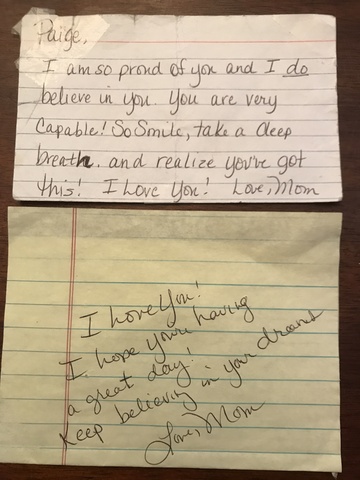 Paige,
I am so proud of you and I do
believe in you. You are very
Capable! So Smile, take a deep
breath. and realize you've got
this! I Love You! Love, Mom
I love You!
I hope you're having
a great day!
Keep believing in your dreams
Love, Mom